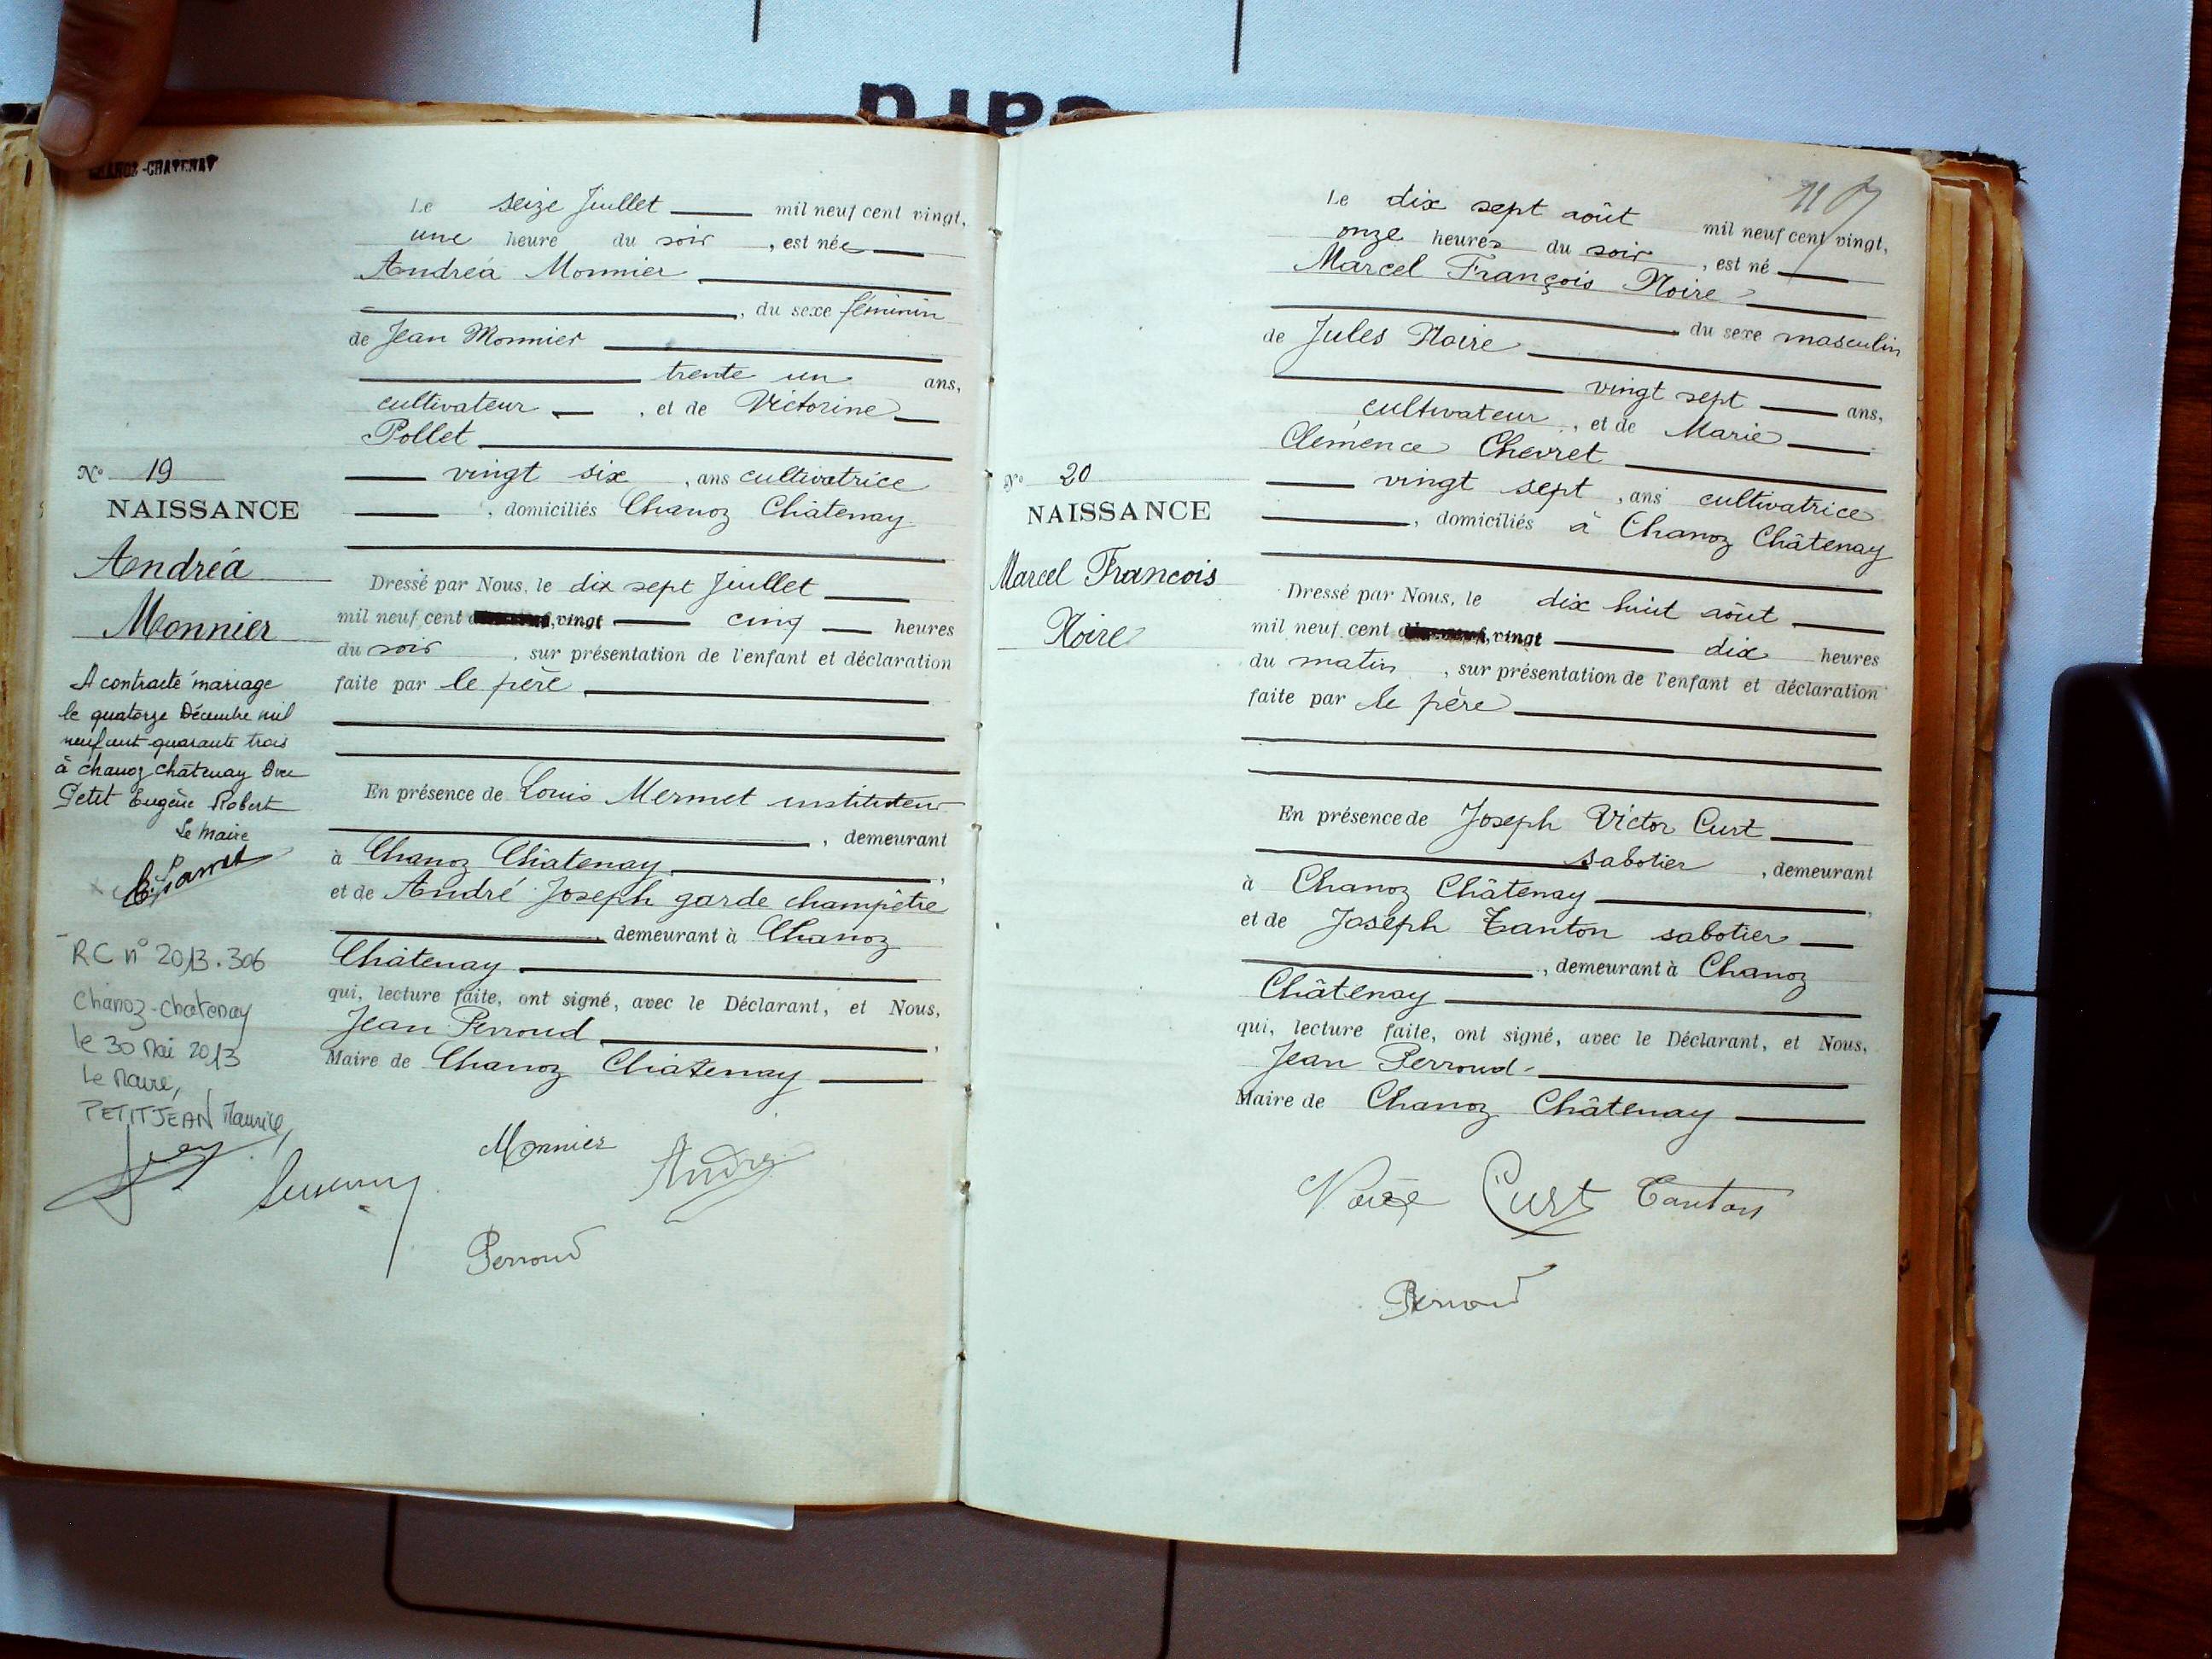 CHANOZ-CHATENAY
Le seize Juillet mil neuf cent vingt,
une heure du soir, est née
Andréa Monnier
, du sexe féminin
de Jean Monnier
trente un ans,
cultivateur, et de Victorine
Pollet
vingt six, ans cultivatrice
, domiciliés Chanoz Châtenay
N° 19
NAISSANCE
Andréa
Monnier
Dressé par Nous, le dix sept Juillet
mil neuf cent vingt cinq heures
du soir, sur présentation de l'enfant et déclaration
faite par le père
A contracté mariage
le quatorze Décembre mil
neuf cent quarante trois
à Chanoz Châtenay avec
Petit Eugène Robert
Le Maire
En présence de Louis Mermet instituteur
, demeurant
à Chanoz Châtenay,
et de André Joseph garde champêtre
, demeurant à Chanoz
Châtenay
qui, lecture faite, ont signé, avec le Déclarant, et Nous,
Jean Perroud,
Maire de Chanoz Châtenay
RC n° 2013.306
Chanoz-Chatenay
le 30 Mai 2013
Le Maire,
PETITJEAN Maurice,
Monnier André
Perroud
Le dix sept août mil neuf cent vingt,
onze heures du soir, est né
Marcel François Noire
du sexe masculin
de Jules Noire
vingt sept ans,
cultivateur, et de Marie
Clémence Chevret
vingt sept, ans cultivatrice
, domiciliés à Chanoz Châtenay
N° 20
NAISSANCE
Marcel Francois
Noire
Dressé par Nous, le dix huit août
mil neuf cent vingt dix heures
du matin, sur présentation de l'enfant et déclaration
faite par le père
En présence de Joseph Victor Curt
sabotier, demeurant
à Chanoz Châtenay,
et de Joseph Tanton sabotier
, demeurant à Chanoz
Châtenay
qui, lecture faite, ont signé, avec le Déclarant, et Nous,
Jean Perroud
Maire de Chanoz Châtenay
Noire Curt Tanton
Perroud